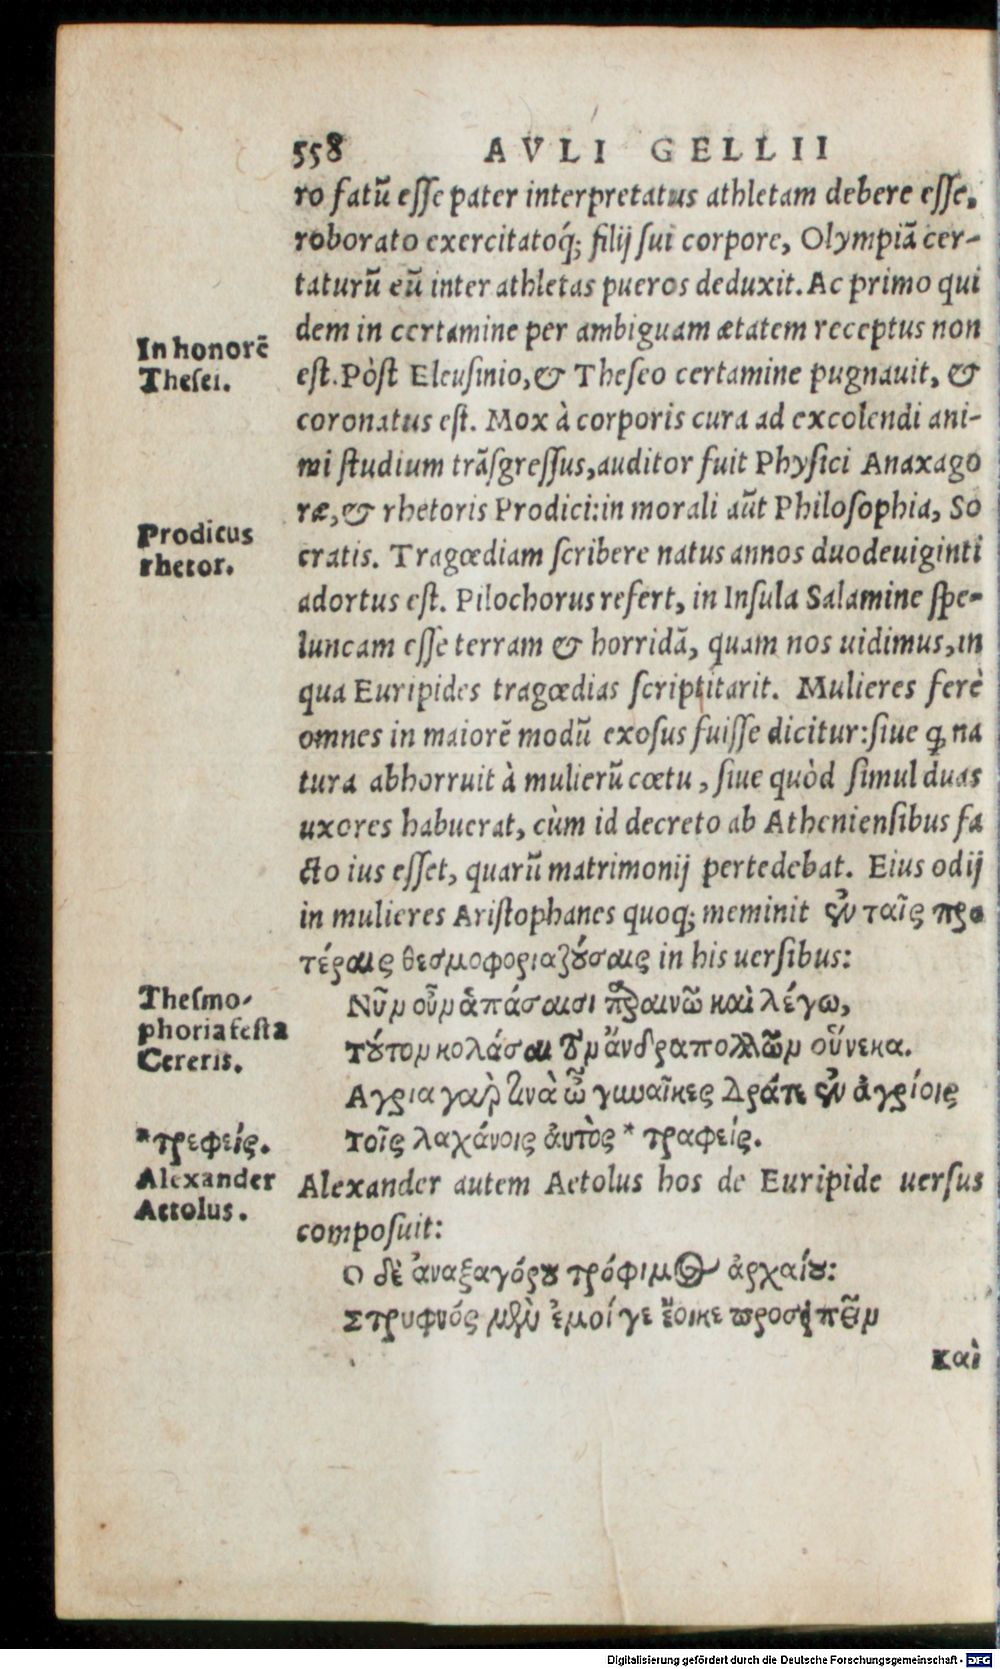 558 AVLI GELLII
ro fatũ esse pater interpretatus athletam debere esse,
roborato exercitatoq́; filij sui corpore, Olympiã cer-
taturũ eũ inter athletas pueros deduxit. Ac primo qui
dem in certamine per ambiguam ætatem receptus non
In honorẽ
est. Pòst Eleusinio, & Theseo certamine pugnauit, &
Thesei.
coronatus est. Mox à corporis cura ad excolendi ani-
mi studium trãsgressus, auditor fuit Physici Anaxago
ræ, & rhetoris Prodici: in morali aũt Philosophia, So
Prodicus
cratis. Tragœdiam scribere natus annos duodeuiginti
rhetor.
adortus est. Pilochorus refert, in Insula Salamine spe-
luncam esse terram & horridã, quam nos uidimus, in
qua Euripides tragœdias scriptitarit. Mulieres ferè
omnes in maiorẽ modũ exosus fuisse dicitur: siue ꝙ na
tura abhorruit à mulierũ cœtu, siue quòd simul duas
uxores habuerat, cùm id decreto ab Atheniensibus fa
cto ius esset, quarũ matrimonij pertedebat. Eius odij
in mulieres Aristophanes quoq; meminit ἐν ταῖς προ
τέραις θεσμοφοριαζούσαις in his uersibus:
Thesmo-
Νῦν οὖν ἁπάσαισι παραινῶ καὶ λέγω,
phoria festa
Τοῦτον κολάσαι τὸν ἄνδρα πολλῶν οὕνεκα.
Cereris.
Αγρια γὰρ ἡμᾶς ὦ γυναῖκες Δρᾷ ἐν ἀγρίοις
Τοῖς λαχάνοις ἀυτὸς * τραφείς.
*τρεφείς.
Alexander autem Aetolus hos de Euripide uersus
Alexander
composuit:
Aetolus.
Ο δὲ ἀναξαγόρου τρόφιμος ἀρχαίου:
Στρυφνός μὲν ἐμοί γε ἔοικε προσειπεῖν
Καὶ
Digitalisierung gefördert durch die Deutsche Forschungsgemeinschaft - DFG